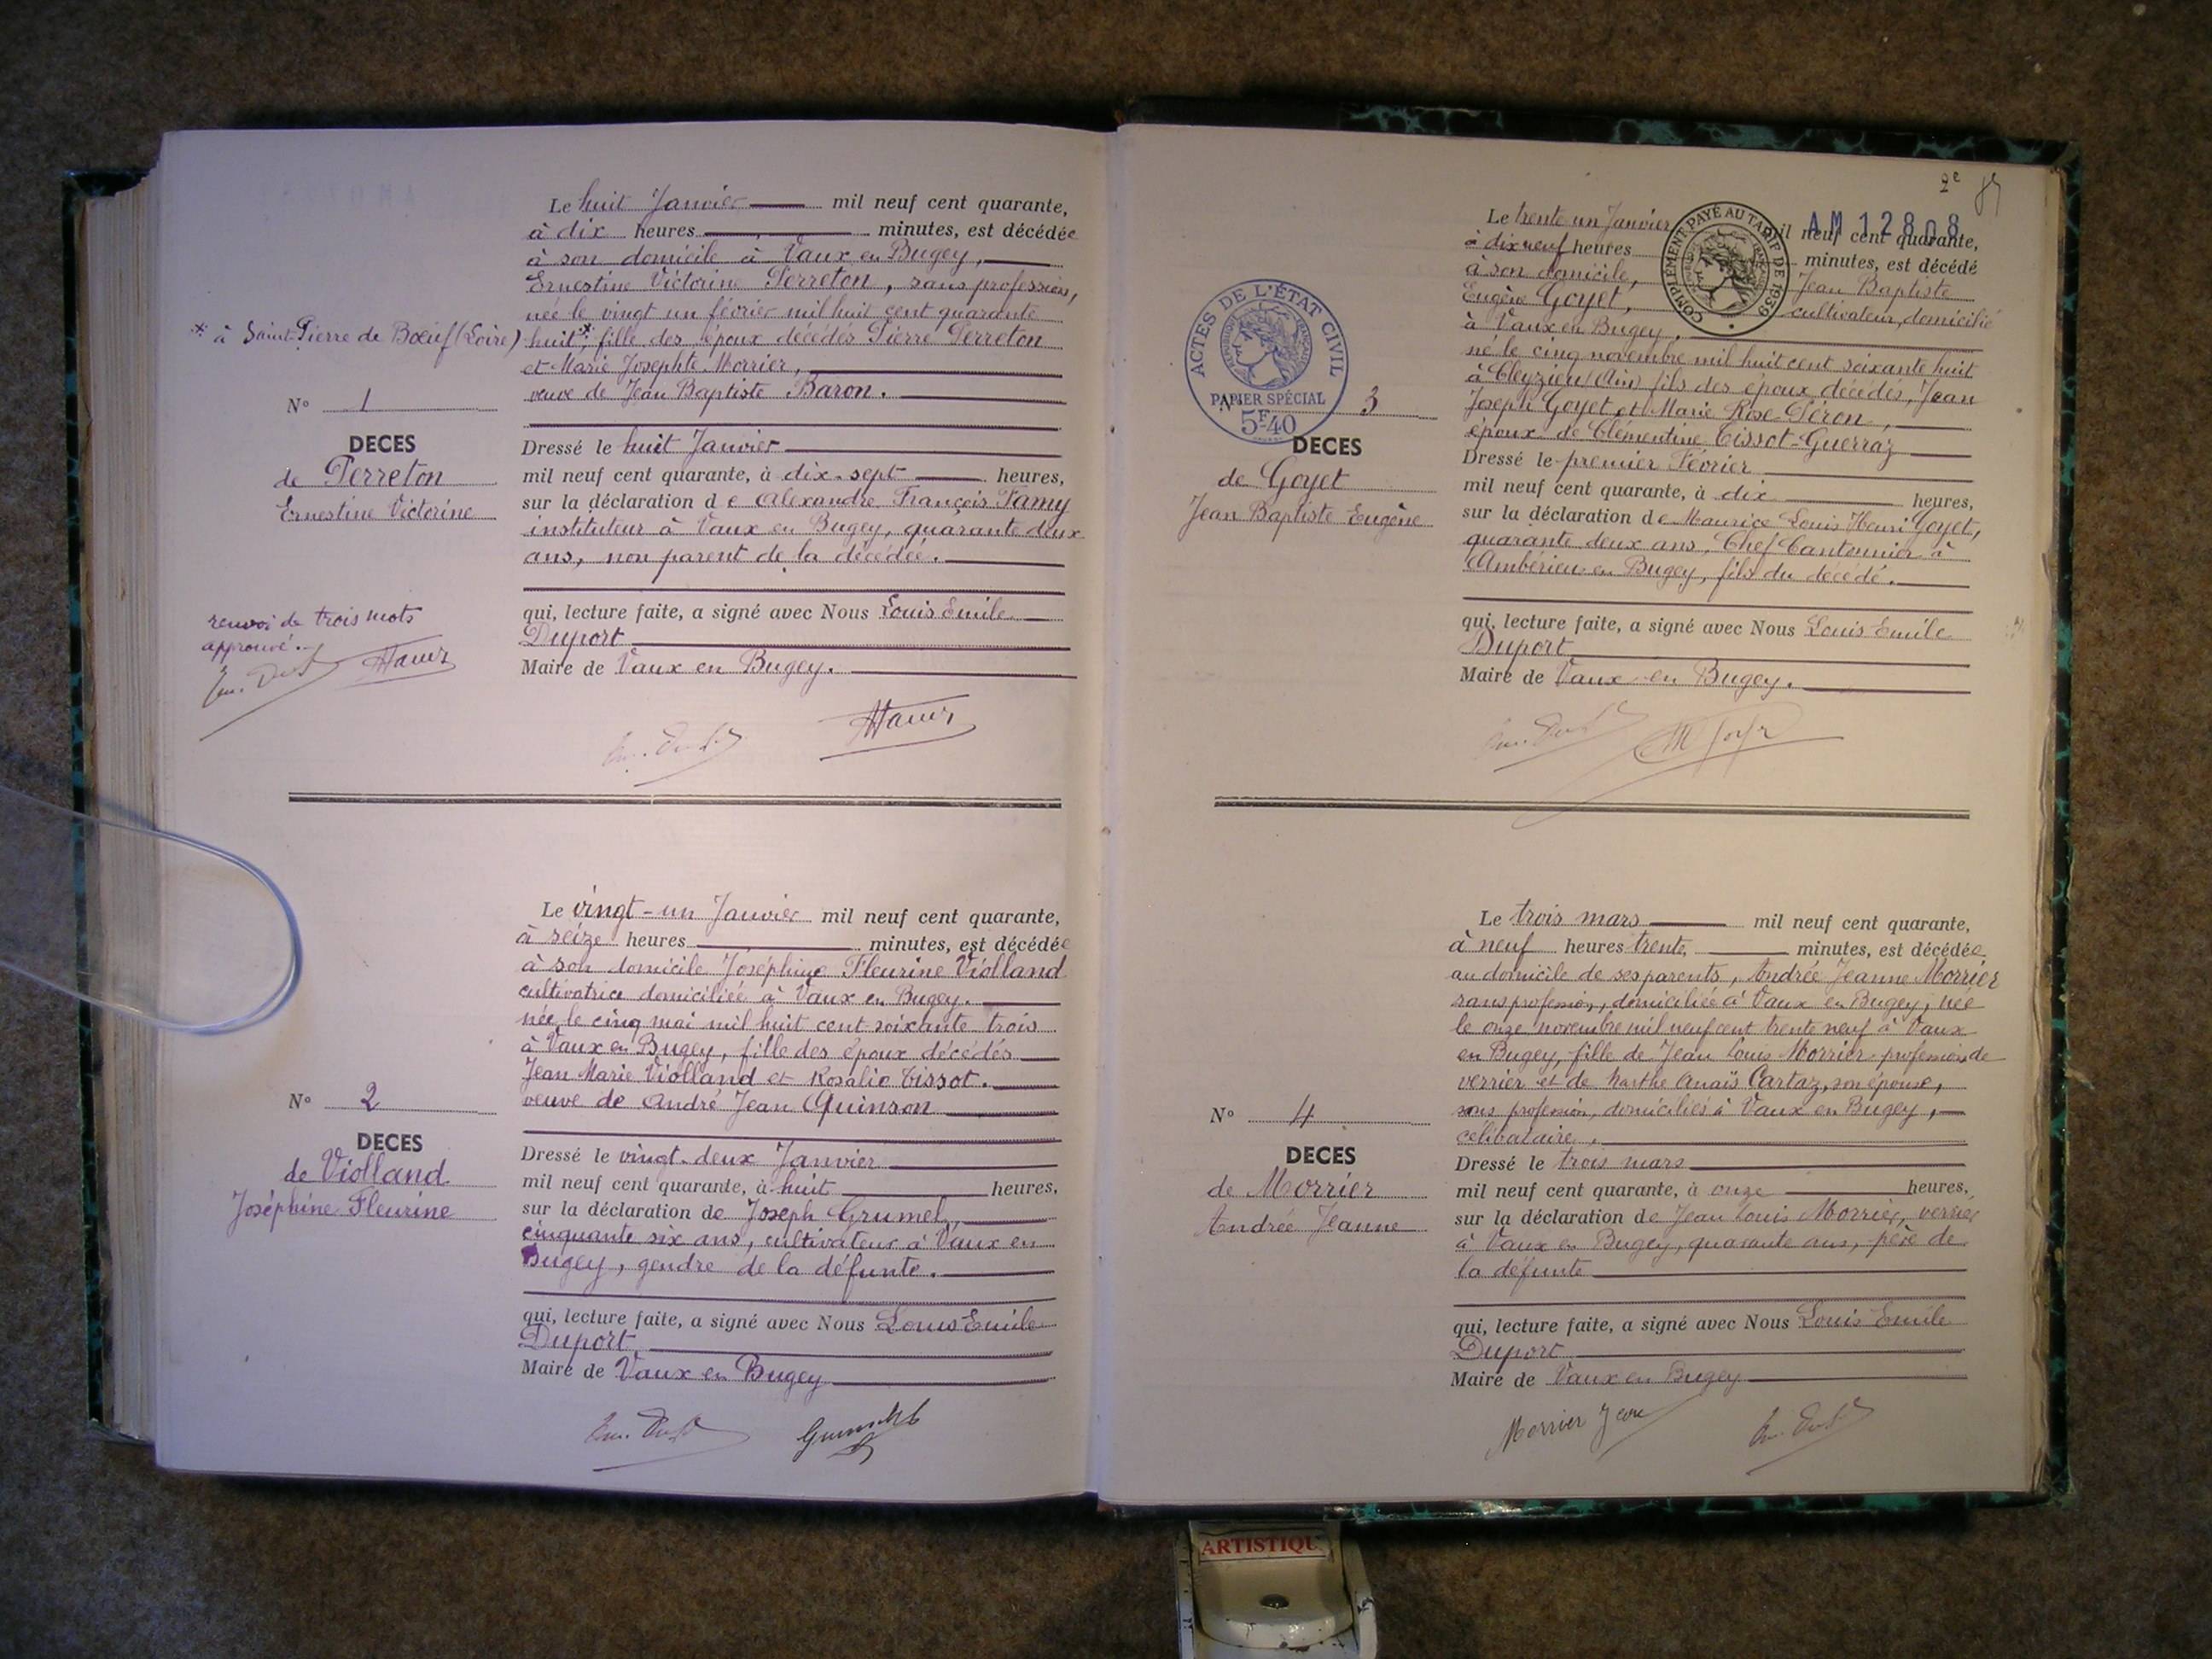 Le huit Janvier mil neuf cent quarante,
à dix heures minutes, est décédée
à son domicile à Vaux en Bugey,
Ernestine Victorine Perreton, sans profession,
née le vingt un février mil huit cent quarante
* à Saint-Pierre de Bœuf (Loire)
huit*, fille des époux décédés Pierre Perreton
et Marie Josephte Morrier,
veuve de Jean Baptiste Baron.
N° 1
DECES
de Perreton
Ernestine Victorine
Dressé le huit Janvier
mil neuf cent quarante, à dix-sept heures,
sur la déclaration de Alexandre François Famy
instituteur à Vaux en Bugey, quarante deux
ans, non parent de la décédée.
renvoi de trois mots
approuvé.
qui, lecture faite, a signé avec Nous Louis Emile
Duport
Maire de Vaux en Bugey.
Le vingt-un Janvier mil neuf cent quarante,
à seize heures minutes, est décédée
à son domicile Joséphine Fleurine Violland
cultivatrice domiciliée à Vaux en Bugey.
née le cinq mai mil huit cent soixante trois
à Vaux en Bugey, fille des époux décédés
Jean Marie Violland et Rosalie Tissot.
veuve de André Jean Quinson
N° 2
DECES
de Violland
Joséphine Fleurine
Dressé le vingt-deux Janvier
mil neuf cent quarante, à huit heures,
sur la déclaration de Joseph Grumel,
cinquante six ans, cultivateur à Vaux en
Bugey, gendre de la défunte.
qui, lecture faite, a signé avec Nous Louis Emile
Duport
Maire de Vaux en Bugey
2e
AM 12808
COMPLÉMENT PAYÉ AU TARIF DE 1939
Le trente un Janvier mil neuf cent quarante,
à dix neuf heures minutes, est décédé
à son domicile, Jean Baptiste
Eugène Goyet, cultivateur, domicilié
à Vaux en Bugey,
né le cinq novembre mil huit cent soixante huit
à Cleyzieu (Ain) fils des époux décédés, Jean
Joseph Goyet et Marie Rose Péron,
époux de Clémentine Tissot-Guerraz
ACTES DE L'ÉTAT CIVIL
RÉPUBLIQUE FRANÇAISE
PAPIER SPÉCIAL
5F40
N° 3
DECES
de Goyet
Jean Baptiste Eugène
Dressé le premier Février
mil neuf cent quarante, à dix heures,
sur la déclaration de Maurice Louis Henri Goyet,
quarante deux ans, Chef Cantonnier à
Ambérieu en Bugey, fils du décédé.
qui, lecture faite, a signé avec Nous Louis Emile
Duport
Maire de Vaux en Bugey.
Le trois mars mil neuf cent quarante,
à neuf heures trente, minutes, est décédée
au domicile de ses parents, Andrée Jeanne Morrier
sans profession, domiciliée à Vaux en Bugey, née
le onze novembre mil neuf cent trente neuf à Vaux
en Bugey, fille de Jean Louis Morrier profession de
verrier et de Marthe Anaïs Cartaz, son épouse,
sans profession, domiciliés à Vaux en Bugey,
célibataire.
N° 4
DECES
de Morrier
Andrée Jeanne
Dressé le trois mars
mil neuf cent quarante, à onze heures,
sur la déclaration de Jean Louis Morrier, verrier
à Vaux en Bugey, quarante ans, père de
la défunte
qui, lecture faite, a signé avec Nous Louis Emile
Duport
Maire de Vaux en Bugey
Morrier Jean
ARTISTIQU